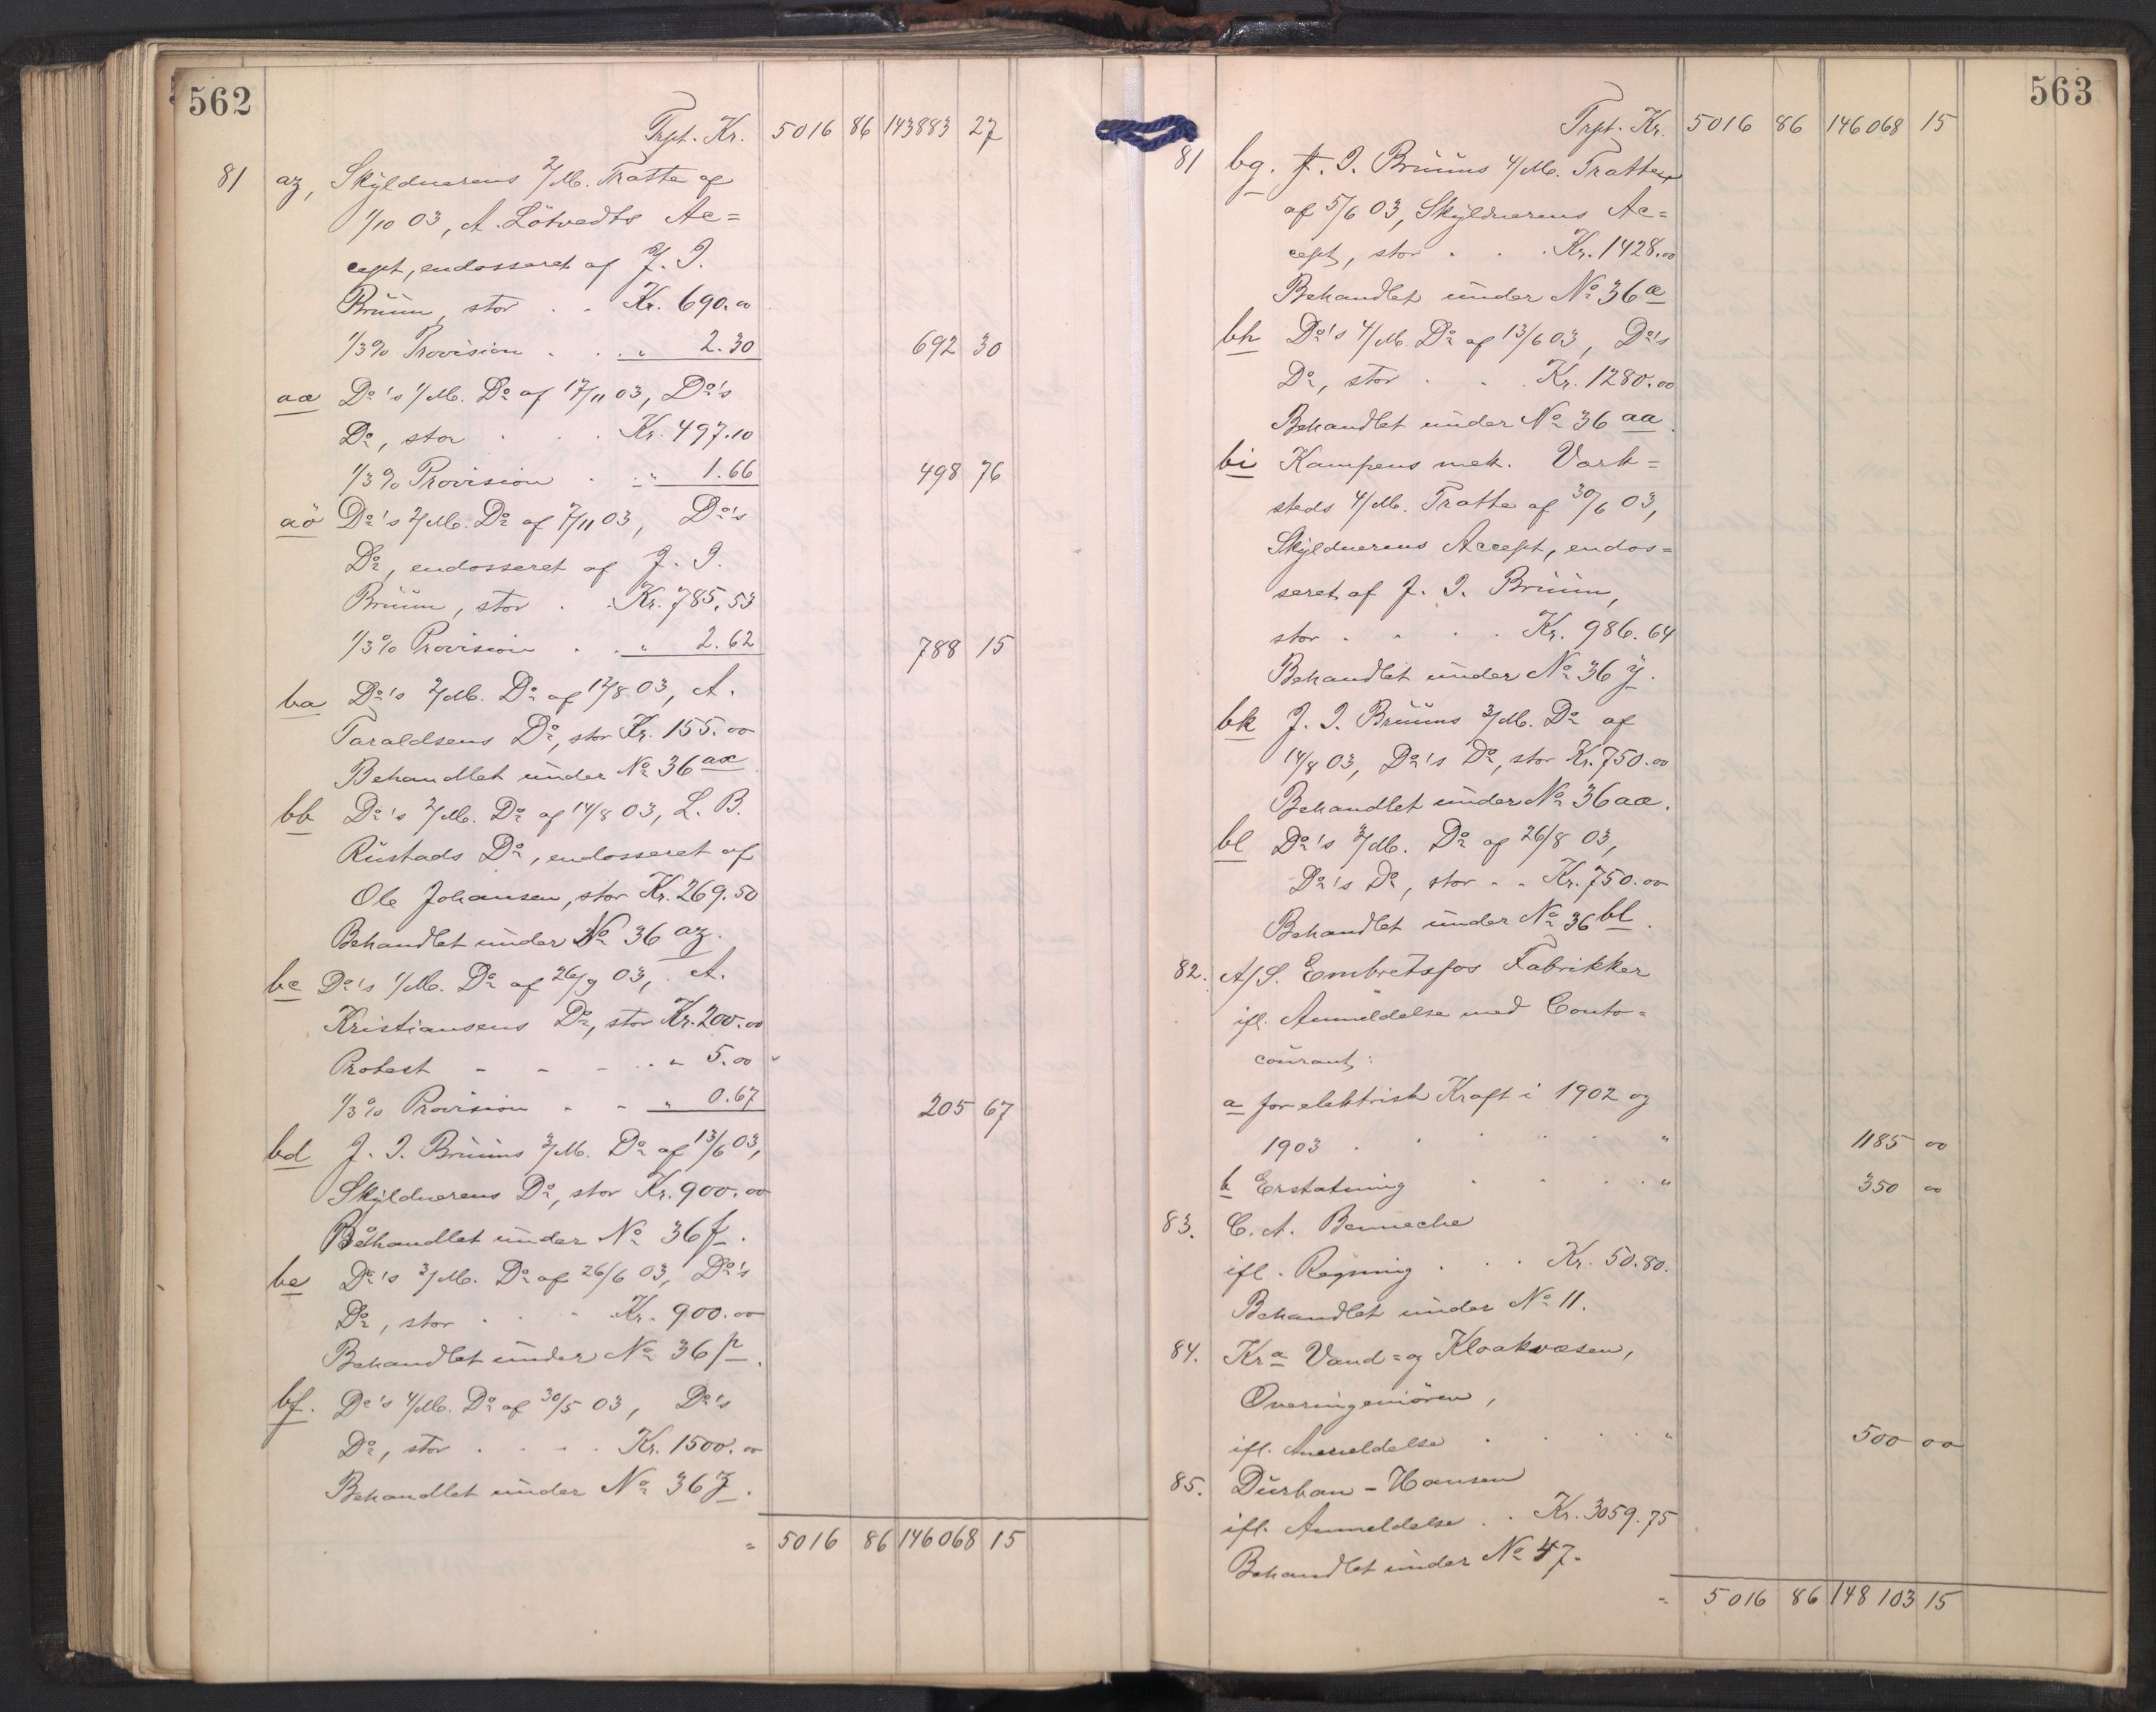 562
Trpt. Kr. 5016 86 143883 27
81 az, Skyldnerens 2/Md. Tratte af
1/10 03, A. Lötvedts Ac=
cept, endosseret af J. I.
Bruun, stor . . Kr. 690.00
1/3% Provision . . . " 2.30 692 30
aæ Do's 1/Md. Do af 17/11 03, Do's
Do, stor . . . Kr. 497.10
1/3% Provision . . " 1.66 498 76
aö Do's 2/Md. Do af 7/11 03, Do's
Do, endosseret af J. I.
Bruun, stor . . Kr. 785.53
1/3% Provision . . " 2.62 788 15
ba Do's 2/Md. Do af 12/8 03, A.
Taraldsens Do, stor Kr. 155.00
Behandlet under No 36 ax
bb Do's 2/Md. Do af 14/8 03, L. B.
Rustads Do, endosseret af
Ole Johansen, stor Kr. 269.50
Behandlet under No 36 az.
bc Do's 1/Md. Do af 26/9 03, A.
Kristiansens Do, stor Kr. 200.00
Protest - - - . " 5.00
1/3% Provision - - " 0.67 205 67
bd J. I. Bruuns 3/Md. Do af 13/6 03,
Skyldnerens Do, stor Kr. 900.00
Behandlet under No 36 f.
be Do's 3/Md. Do af 26/6 03, Do's
Do, stor . . . Kr. 900.00
Behandlet under No 36 p.
bf. Do's 4/Md. Do af 30/5 03, Do's
Do, stor . . . Kr. 1500.00
Behandlet under No 36 z.
" 5016 86 146068 15
563
Trpt. Kr. 5016 86 146068 15
81 bg. J. I. Bruuns 4/Md. Tratte
af 5/6 03, Skyldnerens Ac=
cept, stor . . . Kr. 1428.00
Behandlet under No 36 æ
bh Do's 4/Md. Do af 13/6 03, Do's
Do, stor . . . Kr. 1280.00
Behandlet under No 36 aa.
bi Kampens mek. Værk=
steds 4/Md. Tratte af 30/6 03,
Skyldnerens Accept, endos=
seret af J. I. Bruun,
stor . . . . Kr. 986.64
Behandlet under No 36 y.
bk J. I. Bruuns 3/Md. Do af
14/8 03, Do's Do, stor Kr. 750.00
Behandlet under No 36 aæ.
bl Do's 3/Md. Do af 26/8 03,
Do's Do, stor . . Kr. 750.00
Behandlet under No 36 bl.
82. A/S. Embretsfos Fabrikker
ifl. Anmeldelse med Conto=
courant:
a for elektrisk Kraft i 1902 og
1903 . . . . . " 1185 00
b Erstatning . . . . " 350 00
83. C. A. Benneche
ifl. Regning . . . Kr. 50.80.
Behandlet under No 11.
84. Kra Vand= og Kloakvæsen,
Overingeniören,
ifl. Anmeldelse . . . . " 500 00
85. Durban-Hansen
ifl. Anmeldelse . . Kr. 3059.75
Behandlet under No 47.
" 5016 86 148103 15